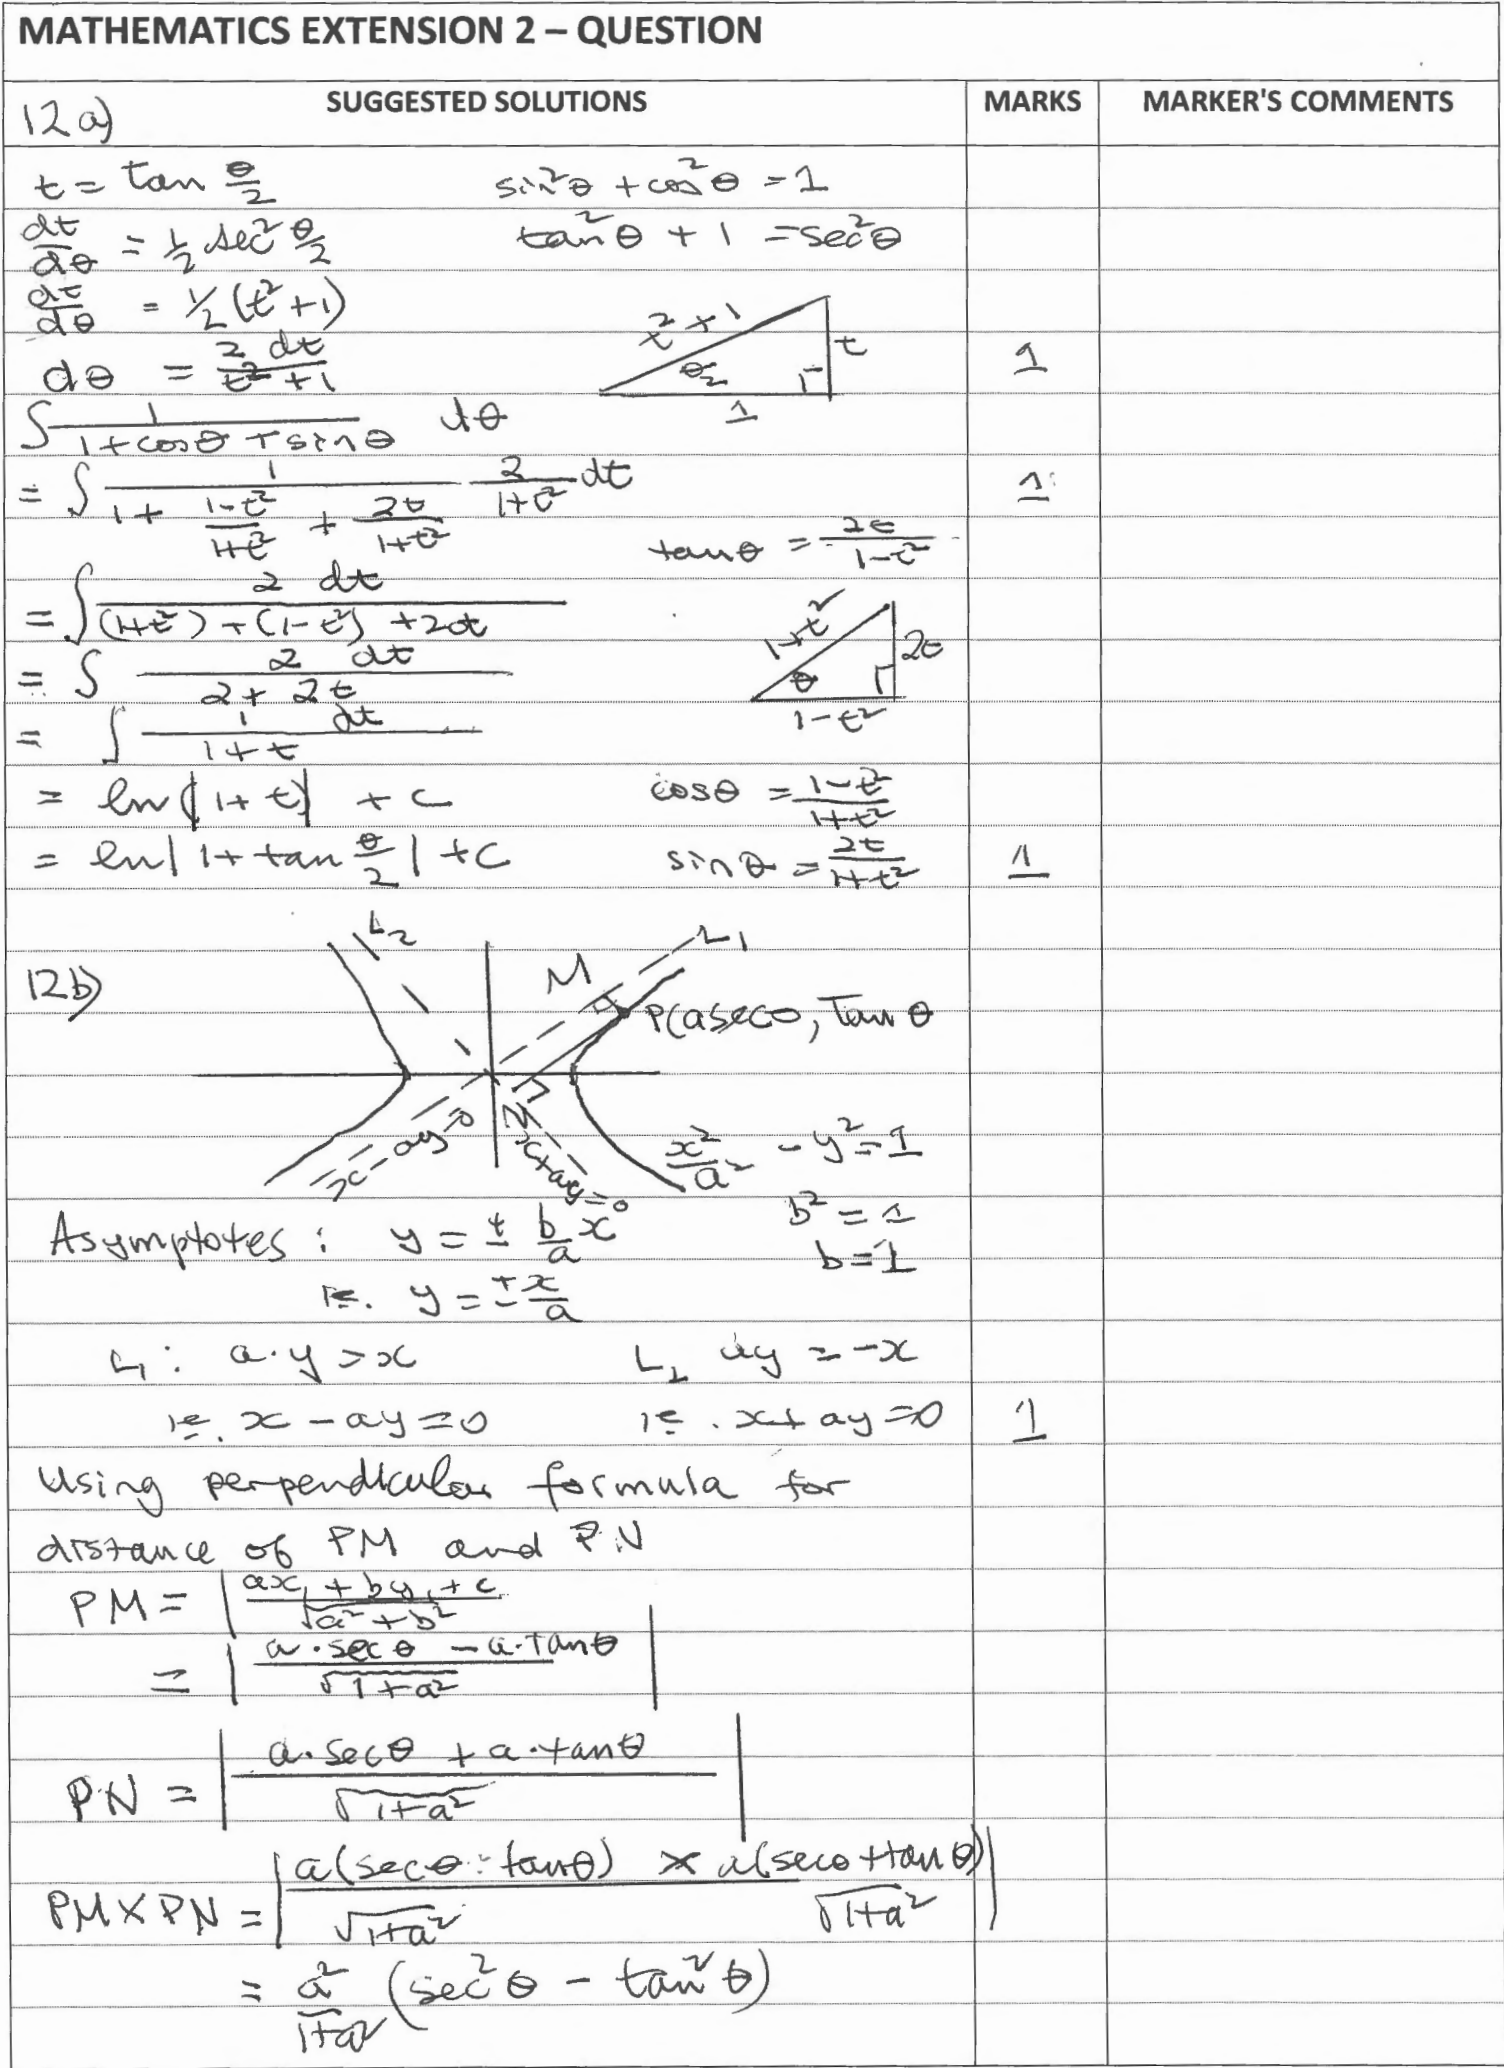 MATHEMATICS EXTENSION 2 – QUESTION
SUGGESTED SOLUTIONS MARKS MARKER'S COMMENTS
12a)
t = tan θ/2 sin²θ + cos²θ = 1
dt/dθ = 1/2 sec² θ/2 tan²θ + 1 = sec²θ
dt/dθ = 1/2 (t² + 1)
t² + 1 t θ/2 1
dθ = 2 dt/(t² + 1) 1
∫ 1/(1 + cosθ + sinθ) dθ
= ∫ 1/(1 + (1-t²)/(1+t²) + 2t/(1+t²)) 2/(1+t²) dt 1
tanθ = 2t/(1-t²)
= ∫ 2 dt/((1+t²) + (1-t²) + 2t)
1+t² 2t θ 1-t²
= ∫ 2 dt/(2 + 2t)
= ∫ 1 dt/(1 + t)
= ln|1+t| + c cosθ = (1-t²)/(1+t²)
= ln|1 + tan θ/2| + c sinθ = 2t/(1+t²) 1
12b)
L2 L1
M
P(a secθ, Tan θ
N
x - ay = 0 x + ay = 0 x²/a² - y² = 1
Asymptotes : y = ± b/a x b² = 1
b = 1
ie. y = ± x/a
L1 : a·y = x L2 ay = -x
ie. x - ay = 0 ie. x + ay = 0 1
Using perpendicular formula for
distance of PM and PN
PM = |(ax₁ + by₁ + c)/√(a² + b²)
= |(a·secθ - a·tanθ)/√(1 + a²)|
PN = |(a·secθ + a·tanθ)/√(1+a²)|
PM × PN = |a(secθ - tanθ)/√(1+a²) × a(secθ + tanθ)/√(1+a²)|
= a²/(1+a²) (sec²θ - tan²θ)